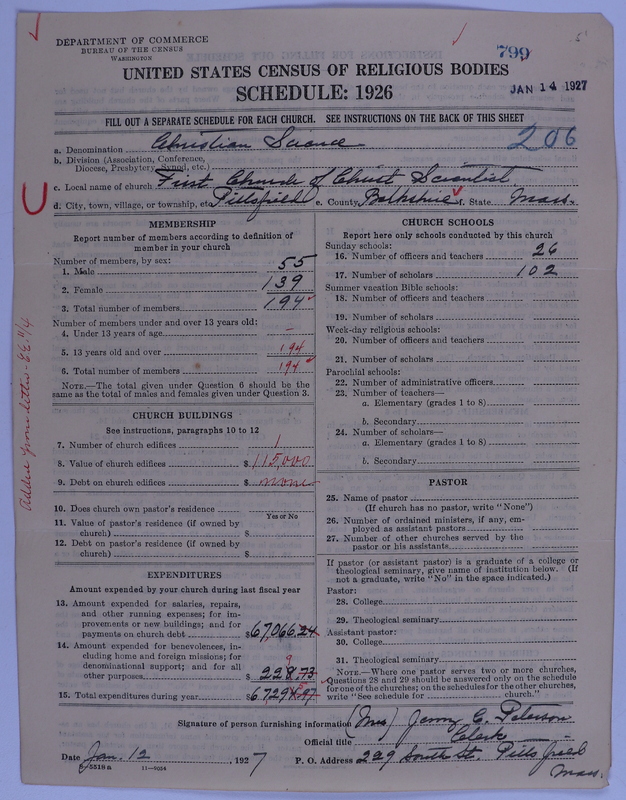 DEPARTMENT OF COMMERCE
BUREAU OF THE CENSUS
WASHINGTON
799
UNITED STATES CENSUS OF RELIGIOUS BODIES
SCHEDULE: 1926
JAN 14 1927
FILL OUT A SEPARATE SCHEDULE FOR EACH CHURCH. SEE INSTRUCTIONS ON THE BACK OF THIS SHEET
206
a. Denomination Christian Science
b. Division (Association, Conference, Diocese, Presbytery, Synod, etc.)
c. Local name of church First Church of Christ Scientist
d. City, town, village, or township, etc. Pittsfield e. County, Berkshire f. State Mass.
MEMBERSHIP
Report number of members according to definition of member in your church
Number of members, by sex:
1. Male 55
2. Female 139
3. Total number of members 194
Number of members under and over 13 years old:
4. Under 13 years of age –
5. 13 years old and over 194
6. Total number of members 194
NOTE.—The total given under Question 6 should be the same as the total of males and females given under Question 3.
CHURCH BUILDINGS
See instructions, paragraphs 10 to 12
7. Number of church edifices 1
8. Value of church edifices $115000
9. Debt on church edifices $ none
10. Does church own pastor's residence
Yes or No
11. Value of pastor's residence (if owned by church) $
12. Debt on pastor's residence (if owned by church) $
EXPENDITURES
Amount expended by your church during last fiscal year
13. Amount expended for salaries, repairs, and other running expenses; for improvements or new buildings; and for payments on church debt $67,066.24
14. Amount expended for benevolences, including home and foreign missions; for denominational support; and for all other purposes $228.73
9
15. Total expenditures during year $
CHURCH SCHOOLS
Report here only schools conducted by this church
Sunday schools:
16. Number of officers and teachers 26
17. Number of scholars 102
Summer vacation Bible schools:
18. Number of officers and teachers
19. Number of scholars
Week-day religious schools:
20. Number of officers and teachers
21. Number of scholars
Parochial schools:
22. Number of administrative officers
23. Number of teachers—
a. Elementary (grades 1 to 8)
b. Secondary
24. Number of scholars—
a. Elementary (grades 1 to 8)
b. Secondary
PASTOR
25. Name of pastor
(If church has no pastor, write "None")
26. Number of ordained ministers, if any, employed as assistant pastors
27. Number of other churches served by the pastor or his assistants
If pastor (or assistant pastor) is a graduate of a college or theological seminary, give name of institution below. (If not a graduate, write "No" in the space indicated.)
Pastor:
28. College
29. Theological seminary
Assistant pastor:
30. College
31. Theological seminary
NOTE.—Where one pastor serves two or more churches, Questions 28 and 29 should be answered only on the schedule for one of the churches; on the schedules for the other churches, write "See schedule for church."
Signature of person furnishing information (Mrs) Jenny C. Peterson
Official title Clerk
Date Jan. 12, 1927 P. O. Address 229 South St. Pittsfield
Mass.
8-5518 a 11—9034